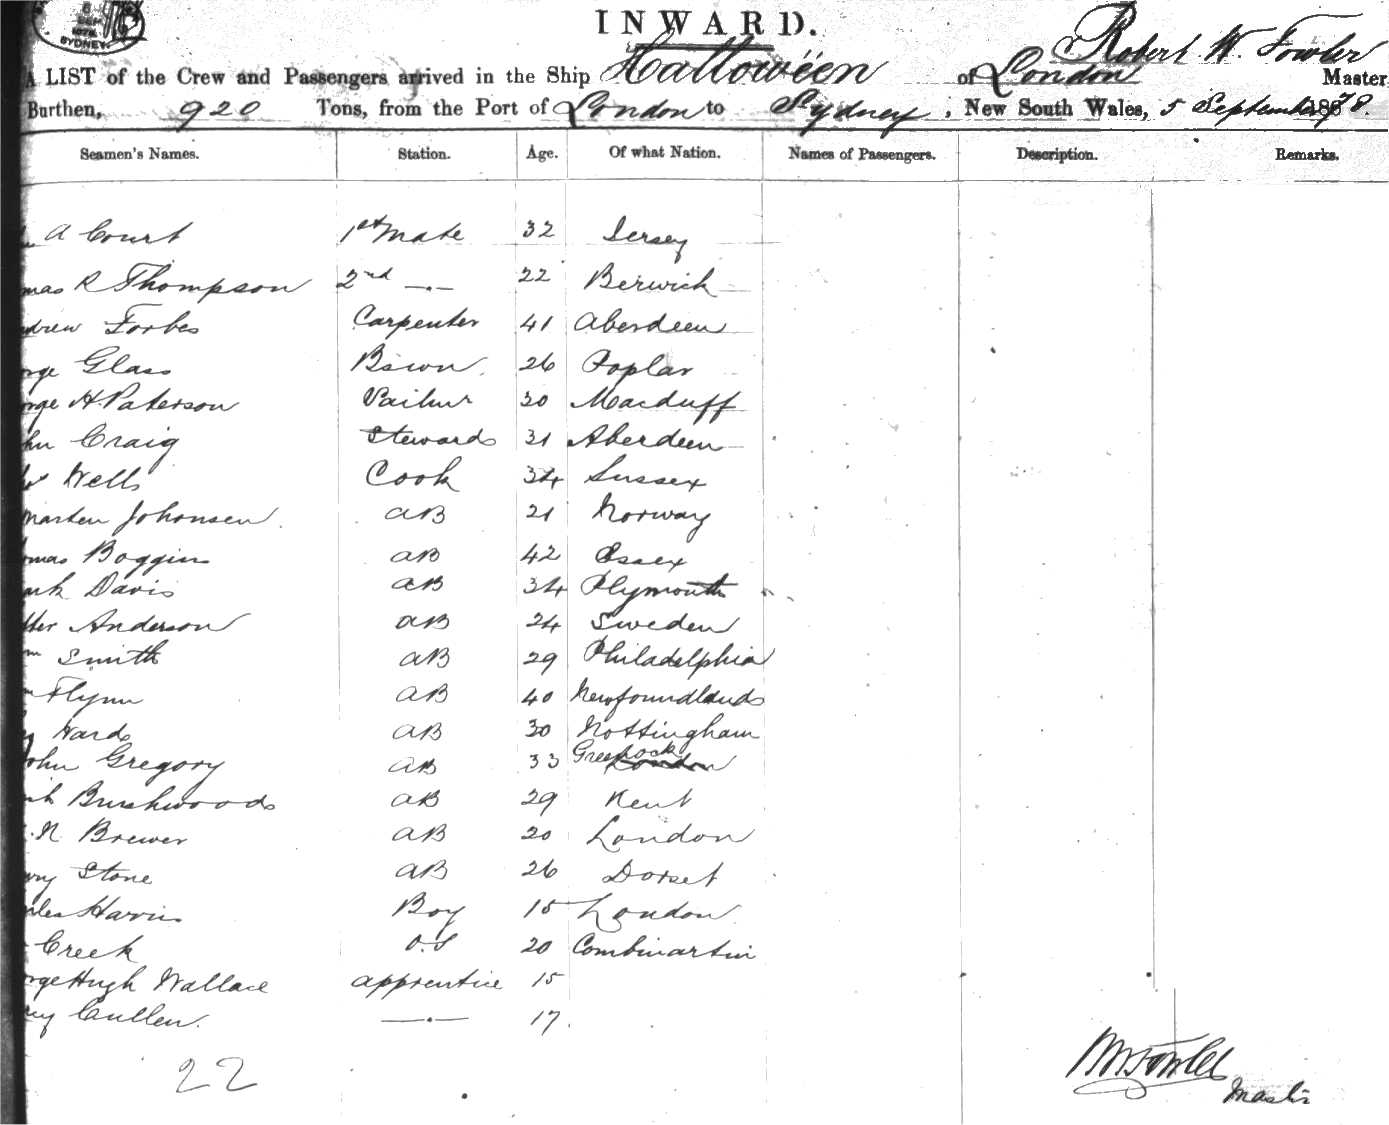 6
SEP
1878
SYDNEY
INWARD.
A LIST of the Crew and Passengers arrived in the Ship Hallowëen of London Robert W. Fowler Master
Burthen, 920 Tons, from the Port of London to Sydney, New South Wales, 5 September 1878.
Seamen's Names. Station. Age. Of what Nation. Names of Passengers. Description. Remarks.
A Court 1st Mate 32 Jersey
mas R Thompson 2nd —·— 22 Berwick
drew Forbes Carpenter 41 Aberdeen
rge Glass Bswn. 26 Poplar
orge H. Paterson 30 Macduff
hn Craig Stewards 31 Aberdeen
Wells Cook 34 Sussex
marten Johonsen AB 21 Norway
omas Boggins AB 42 Essex
ark Davis AB 34 Plymouth
Anderson AB 24 Sweden
m Smith AB 29 Philadelphia
Flynn AB 40 Newfoundlands
Hards AB 30 Nottingham
ohn Gregory AB 33 Greenock London
Burshwoods AB 29 Kent
N Brewer AB 20 London
Stone AB 26 Dorset
rles Harris Boy 15 London
Creek O.S 20 Combinartin
rge Hugh Wallace apprentice 15
Cullen. —·— 17.
22
RW Fowler
Master